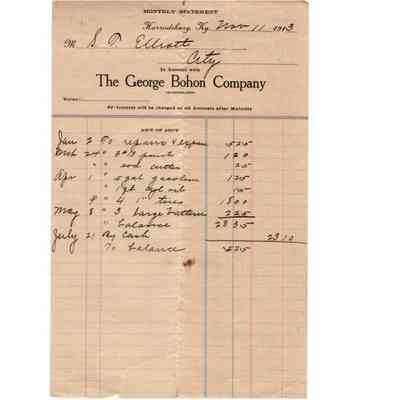 MONTHLY STATEMENT
Harrodsburg, Ky. Nov 11 1913
M S. P. Elliott
City
In Account with
The George Bohon Company
INCORPORATED
Terms:
6% Interest will be charged on all Accounts after Maturity
AMT OF ACCT
Jan 2 To repairs & 525
Mch 24 " paint 120
" " rod cutter 25
Apr 1 " 5 gal gasoline 125
" 1 gal oil
9 " 4 1" tires 1800
May 8 " 3 large batteries 225
" balance 2835
July 21 By Cash 2310
To balance 525